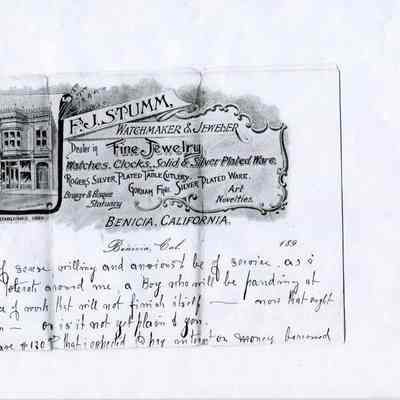 F. J. STUMM,
WATCHMAKER & JEWELER
Dealer in Fine Jewelry
Watches, Clocks, Solid & Silver Plated Ware.
ROGERS SILVER PLATED TABLE CUTLERY.
GORHAM FINE SILVER PLATED WARE.
Bronze & Bisque Statuary
Art Novelties.
BENICIA, CALIFORNIA.
Benicia, Cal. 189
of sense willing and anxious to be of service as i
around me a Boy who will be pandering at
of work that will not finish itself — now that ought
— or is it not yet plain to you.
$130 that i expected to pay interest on money borrowed